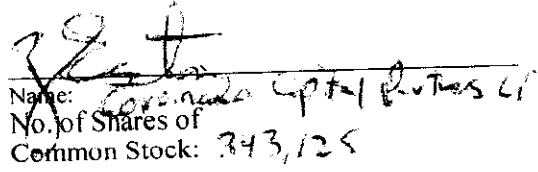 Name: Coronado Capital Partners LP
No. of Shares of
Common Stock: 343,125